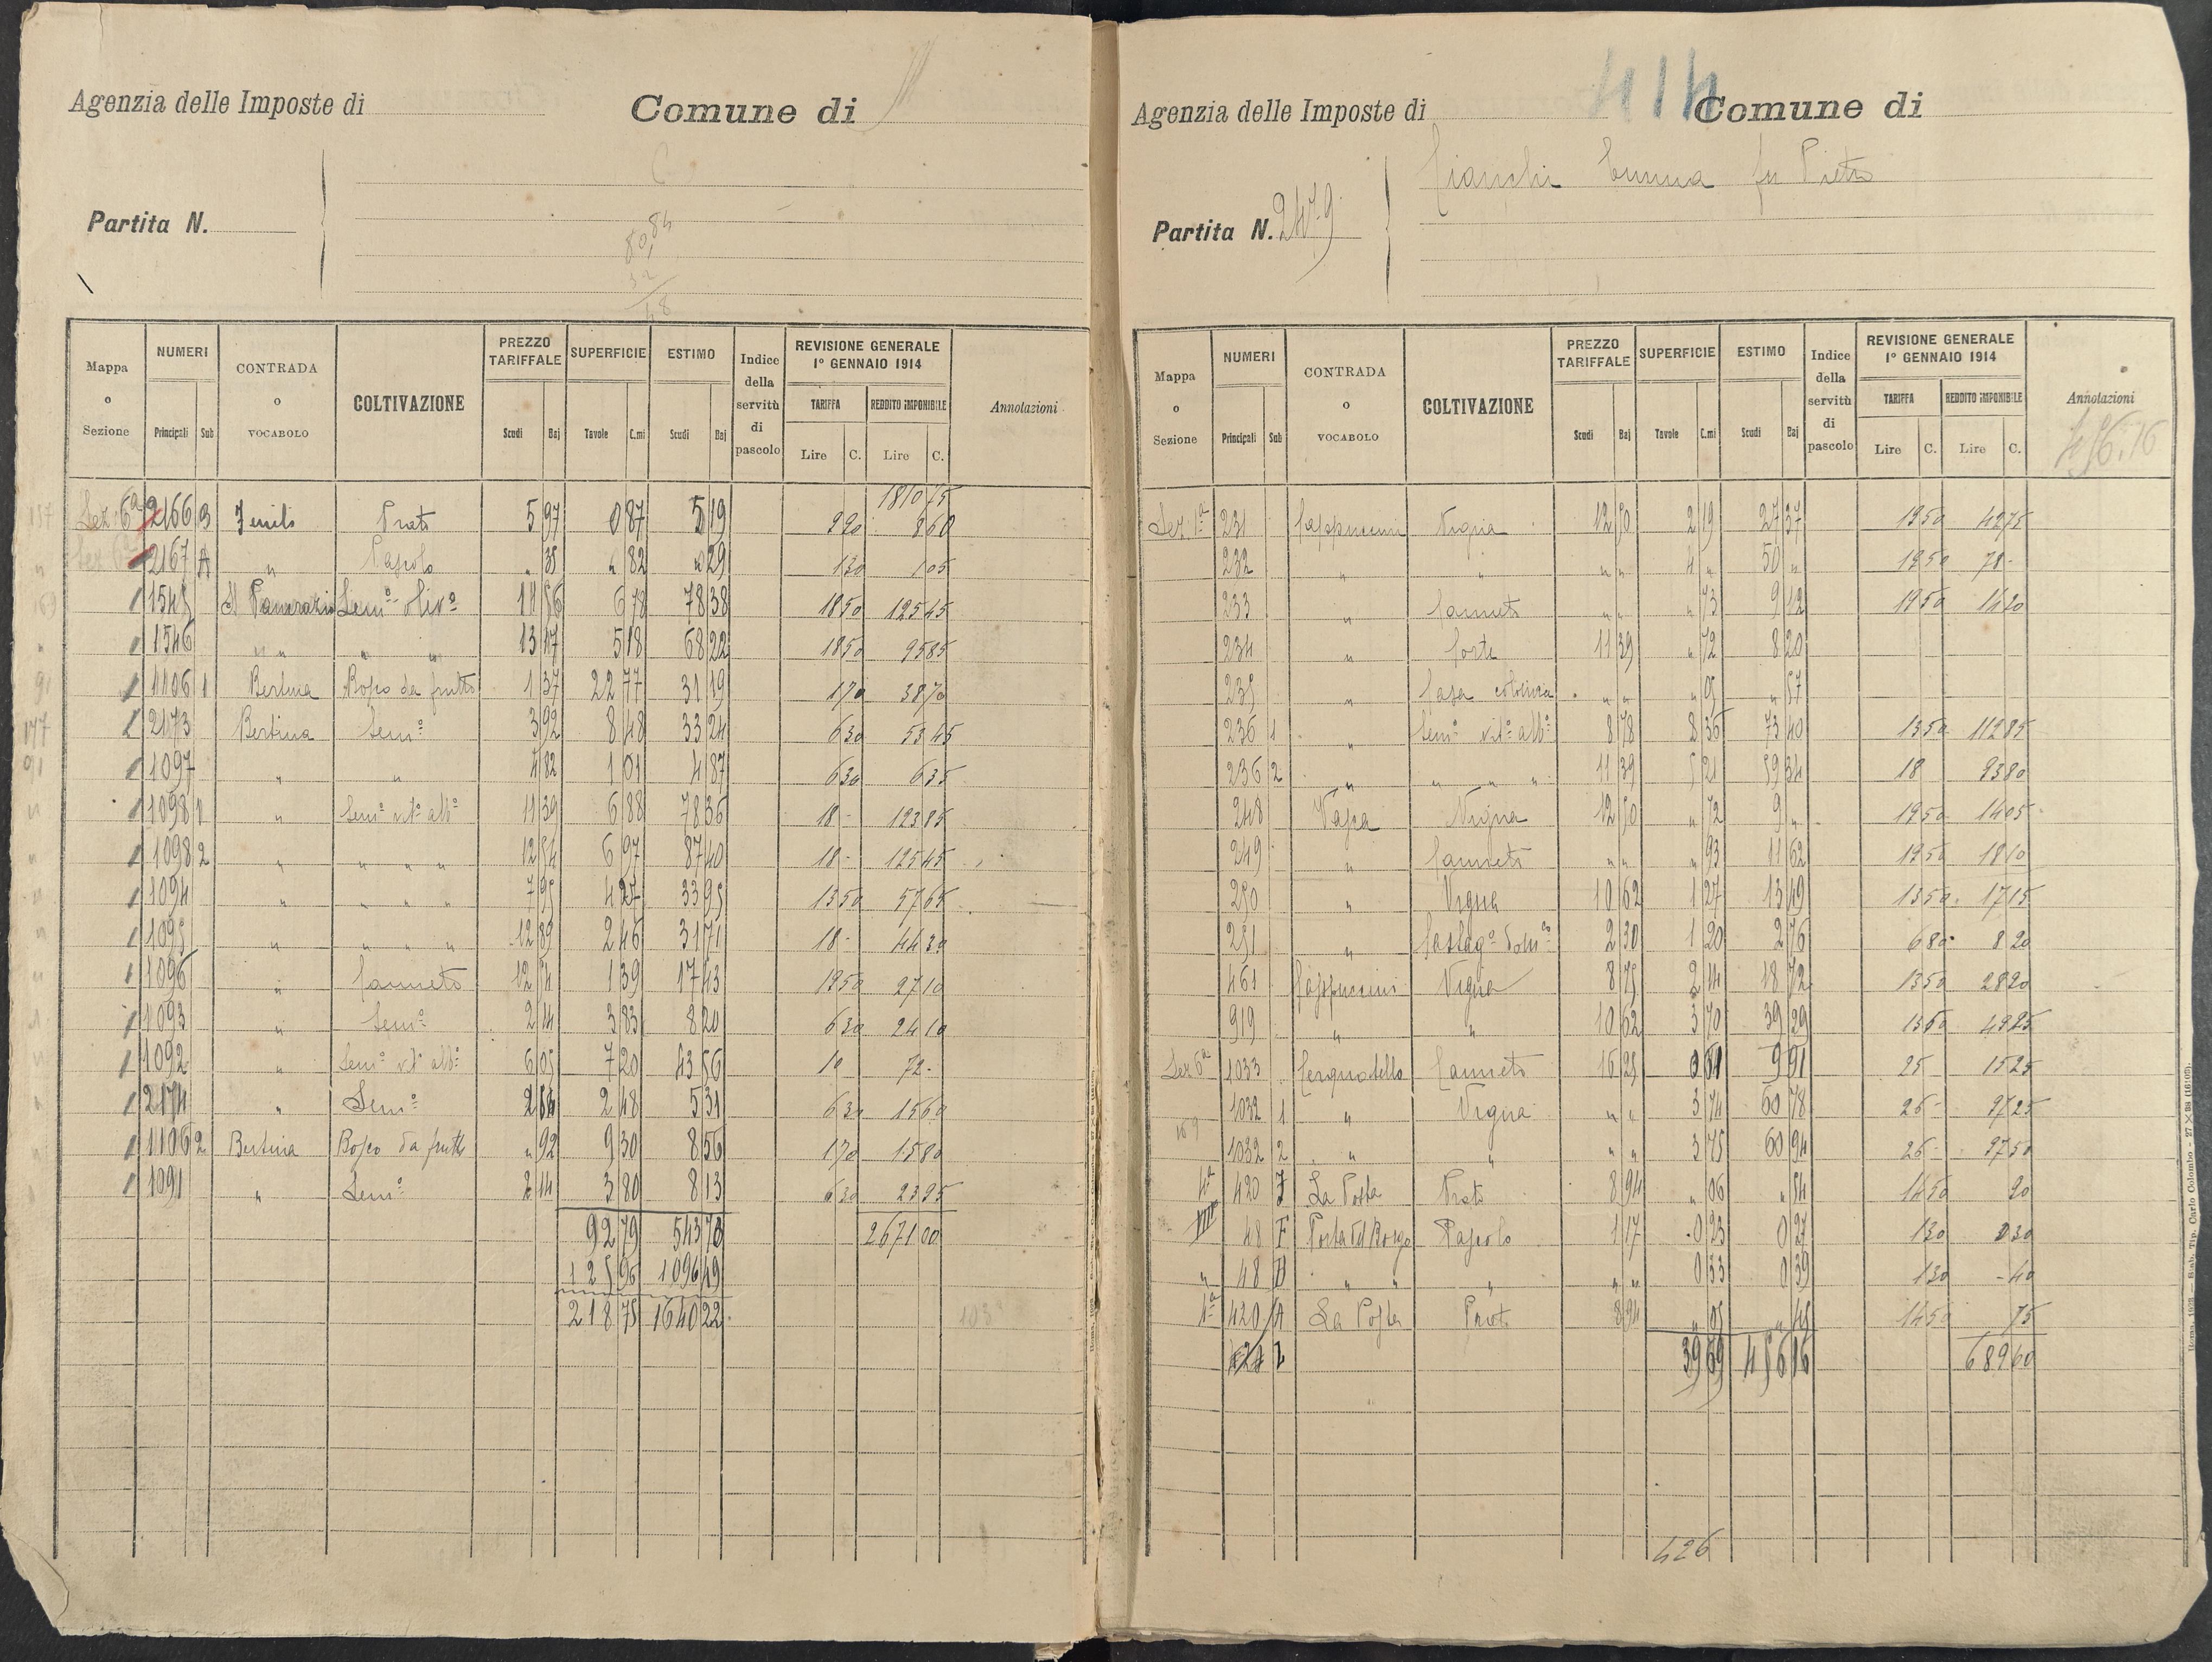 Agenzia delle Imposte di
Comune di
Partita N.
80,84
32
48
Mappa o Sezione | NUMERI Principali Sub | CONTRADA O VOCABOLO | COLTIVAZIONE | PREZZO TARIFFALE Scudi Baj | SUPERFICIE Tavole C.mi | ESTIMO Scudi Baj | Indice della servitù di pascolo | REVISIONE GENERALE 1° GENNAIO 1914 TARIFFA Lire C. REDDITO IMPONIBILE Lire C. | Annotazioni
1810 75
Sez. 6ª 2166 B Prato 5 97 0 87 5 19 9 90 8 60
Sez 6ª 2167 A " Pascolo " 35 " 82 " 29 1 30 1 05
1545 S. Pancrazio Sem.º oliv.º 11 56 6 78 78 38 18 50 125 45
1546 " " " " 13 17 5 18 68 22 18 50 95 85
1106 1 Bertina Bosco da frutto 1 37 22 77 31 19 1 70 38 70
2173 Bertina Sem.º 3 92 8 48 33 24 6 30 53 45
1097 " " 4 82 1 01 4 87 6 30 6 35
1098 1 " Sem.º vit.º alb.º 11 39 6 88 78 36 18 - 123 85
1098 2 " " " " 12 54 6 97 87 40 18 - 125 45
1094 " " " " 7 95 4 27 33 95 13 50 57 65
1095 " " " " 12 89 2 46 31 71 18 - 44 30
1096 " Canneto 12 54 1 39 17 43 19 50 27 10
1093 " Sem.º 2 14 3 83 8 20 6 30 24 10
1092 " Sem.º vit.º alb.º 6 05 7 20 43 56 10 72 -
2174 " Sem.º 2 14 2 48 5 31 6 30 15 60
1106 2 Bertina Bosco da frutto " 92 9 30 8 56 1 70 15 80
1091 " Sem.º 2 14 3 80 8 13 6 30 23 95
92 79 543 73 2671 00
125 96 1096 49
218 75 1640 22
Agenzia delle Imposte di
414
Comune di
Cianchi Emma fu Pietro
Partita N. 2479
Mappa o Sezione | NUMERI Principali Sub | CONTRADA O VOCABOLO | COLTIVAZIONE | PREZZO TARIFFALE Scudi Baj | SUPERFICIE Tavole C.mi | ESTIMO Scudi Baj | Indice della servitù di pascolo | REVISIONE GENERALE 1° GENNAIO 1914 TARIFFA Lire C. REDDITO IMPONIBILE Lire C. | Annotazioni
456.16
Sez 1ª 231 Cappuccini Vigna 12 50 2 19 27 37 19 50 42 75
232 " " " " 4 " 50 " 19 50 78 -
233 " Canneto " " " 73 9 12 19 50 14 20
234 " Corte 11 39 " 72 8 20
235 " Casa colonica " " " 05 " 57
236 1 " Sem.º vit.º alb.º 8 78 8 36 73 40 13 50 112 85
236 2 " " " " 11 39 5 21 59 34 18 93 80
248 Vasca Vigna 12 50 " 72 9 " 19 50 14 05
249 " Canneto " " " 93 11 62 19 50 18 10
250 " Vigna 10 62 1 27 13 49 13 50 17 15
251 " Castag.º dom.º 2 30 1 20 2 76 6 80 8 20
461 Cappuccini Vigna 8 75 2 14 18 72 13 50 28 20
919 " " 10 62 3 70 39 29 13 50 49 25
Sez 6ª 1033 Canneto 16 25 0 61 9 91 25 - 15 25
1032 1 " Vigna " " 3 74 60 78 26 - 97 25
1032 2 " " " " 3 75 60 94 26 - 97 50
4ª 420 J La Posta Prato 8 94 " 06 " 54 14 50 90
48 F Porta del Borgo Pascolo 1 17 0 23 0 27 1 30 0 30
" 48 D " " " " " 0 33 0 39 1 30 - 40
4ª 420 A La Posta Prato 8 94 " 05 " 45 14 50 75
39 69 456 16 689 60
426
Roma, 1923 — Stab. Tip. Carlo Colombo - 27 X 38 (16:09).